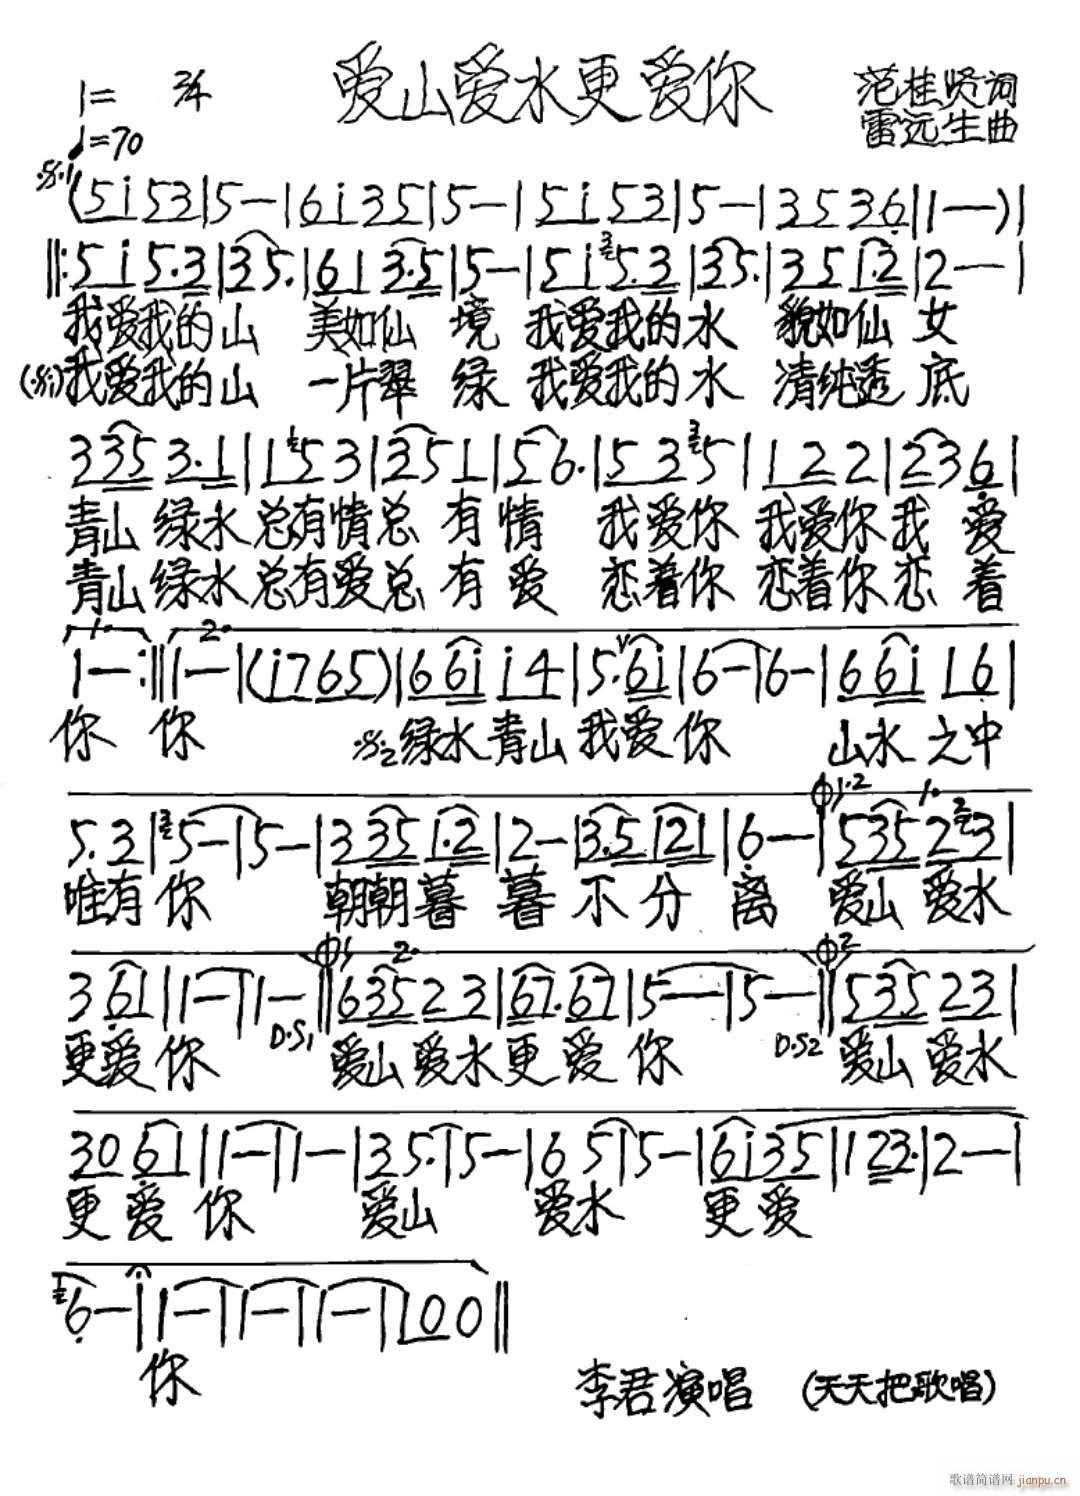 爱山爱水更爱你
1= 2/4
♩=70
范桂贤词
雷远生曲
(5i 53|5—|6i 35|5—|5i 53|5—|35 36|1—)|
‖:5i 5.3|35.|61 3.5|5—|5i 5.3|35.|35 1.2|2—|
我爱我的山 美如仙 境 我爱我的水 貌如仙 女
我爱我的山 一片翠 绿 我爱我的水 清纯透 底
335 3.1|1 53|351|56.|535|122|236|
青山绿水总有情总 有情 我爱你 我爱你我 爱
青山绿水总有爱总 有爱 恋着你 恋着你恋 着
1. 2.
1—:‖1—|(i765)|66i i4|5.6i|6—|6—|66i 16|
你 你 绿水青山我爱你 山水之中
5.3|5—|5—|335 1.2|2—|3.5 121|6—|535 23|
唯有你 朝朝暮 暮不分离 爱山爱水
3 61|1—|1—‖635 23|67.67|5—|5—‖535 23|
D.S1 D.S2
更爱你 爱山爱水更爱你 爱山爱水
30 61|1—|1—|35.|5—|65|5—|6i35|123.|2—|
更爱你 爱山 爱水 更爱
6—|1—|1—|1—|100‖
你
李君演唱 (天天把歌唱)
歌谱简谱网 jianpu.cn